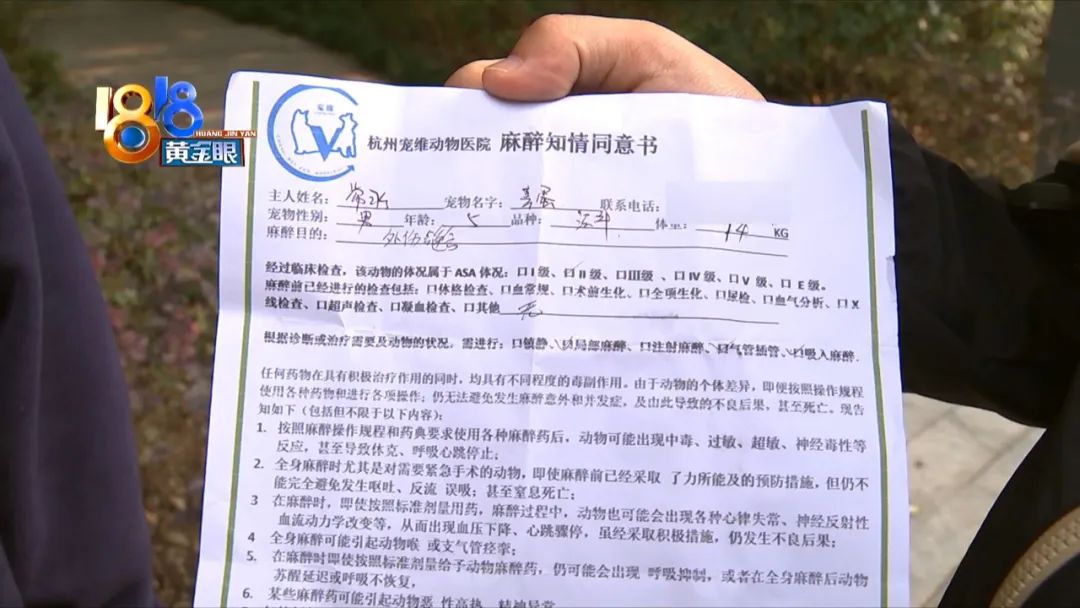 1818
HUANG JIN YAN
黄金眼
宠维
杭州宠维动物医院 麻醉知情同意书
主人姓名: 宠物名字: 喜 联系电话:
宠物性别: 男 年龄: 5 品种: 法斗 体重: 14 KG
麻醉目的: 外伤缝合
经过临床检查，该动物的体况属于 ASA 体况: 口 I 级、口 II 级、口III级 、口 IV 级、口 V 级、口 E 级。
麻醉前已经进行的检查包括: 口体格检查、口血常规、口术前生化、口全项生化、口尿检、口血气分析、口 X
线检查、口超声检查、口凝血检查、口其他 无
根据诊断或治疗需要及动物的状况，需进行: 口镇静、口局部麻醉、口注射麻醉、口气管插管、口吸入麻醉.
任何药物在具有积极治疗作用的同时，均具有不同程度的毒副作用。由于动物的个体差异，即便按照操作规程
使用各种药物和进行各项操作; 仍无法避免发生麻醉意外和并发症，及由此导致的不良后果，甚至死亡。现告
知如下（包括但不限于以下内容）:
1. 按照麻醉操作规程和药典要求使用各种麻醉药后，动物可能出现中毒、过敏、超敏、神经毒性等
反应，甚至导致休克、呼吸心跳停止;
2. 全身麻醉时尤其是对需要紧急手术的动物，即使麻醉前已经采取 了力所能及的预防措施，但仍不
能完全避免发生呕吐、反流 误吸; 甚至窒息死亡;
3 在麻醉时，即使按照标准剂量用药，麻醉过程中，动物也可能会出现各种心律失常、神经反射性
血流动力学改变等，从而出现血压下降、心跳骤停，虽经采取积极措施，仍发生不良后果;
4 全身麻醉可能引起动物喉 或支气管痉挛;
5. 在麻醉时即使按照标准剂量给予动物麻醉药，仍可能会出现 呼吸抑制，或者在全身麻醉后动物
苏醒延迟或呼吸不恢复,
6. 某些麻醉药可能引起动物恶 性高热 精神异常